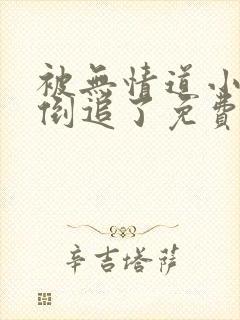 被無情道小
倒追了免費
辛吉塔薩